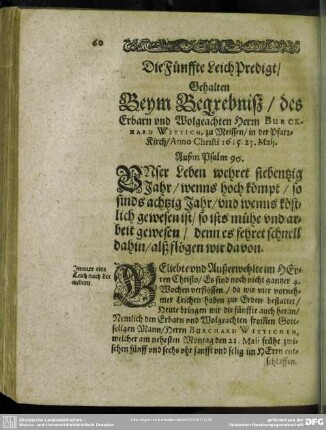 60
Die Fünffte Leich Predigt/
Gehalten
Beym Begrebniß/ des
Erbarn vnd Wolgeachten Herrn BURCK-
HARD WITTICH, zu Meissen/ in der Pfarr-
Kirch/ Anno Christi 1615. 23. Maij.
Außm Psalm 90.
VNser Leben wehret siebentzig
Jahr/ wenns hoch kömpt/ so
sinds achtzig Jahr/ vnd wenns köst-
lich gewesen ist/ so ists mühe vnd ar-
beit gewesen/ denn es fehret schnell
dahin/ alß flögen wir davon.
Immer eine
Leich nach der
andern.
BEliebte vnd Außerwehlte im HEr-
ren Christo/ Es sind noch nicht gantzer 4.
Wochen verflossen/ da wir vier vorneh-
mer Leichen haben zur Erden bestattet/
Heute bringen wir die fünffte auch heran/
Nemlich den Erbarn vnd Wolgeachten frommen Gott-
seligen Mann/ Herrn BURCHARD WITTICHEN,
welcher am nehesten Montag den 22. Maii frühe zwi-
schen fünff vnd sechs vhr sanfft vnd selig im HErrn ent-
schlaffen.